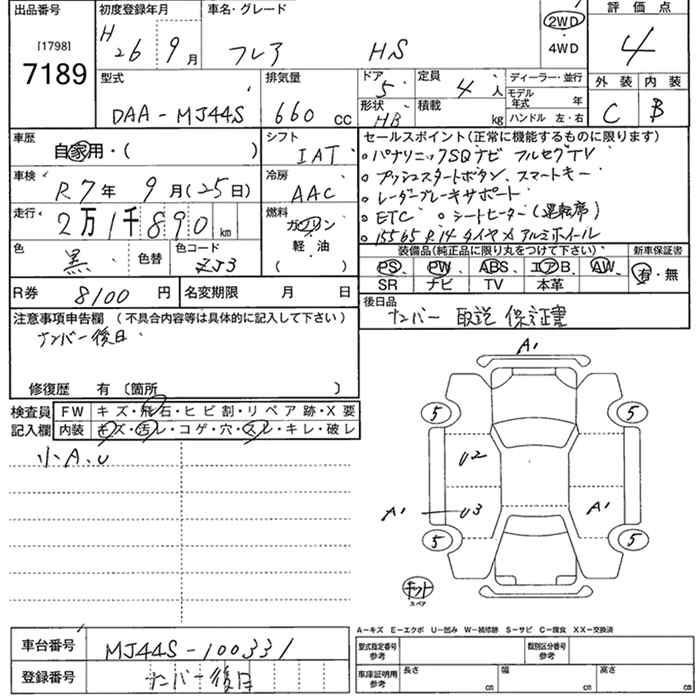 出品番号
[1798]
7189
初度登録年月
H 26 9月
車名・グレード
フレア HS
2WD
・
4WD
評価点
4
外装 内装
C B
型式
DAA-MJ44S
排気量
660 cc
ドア 5
形状 HB
定員 4人
積載 kg
ディーラー・並行
モデル年式 年
ハンドル 左・右
車歴
自家用・( )
車検
R7年 9月(25日)
走行
2万1千890 km
色
黒
色替
色コード
ZJ3
シフト
IAT
冷房
AAC
燃料
ガソリン
軽・油
( )
セールスポイント(正常に機能するものに限ります)
○パナソニック7SDナビ フルセグTV
○プッシュスタートボタン、スマートキー
○レーダーブレーキサポート
○ETC ○シートヒーター(運転席)
○155 65 R.14 タイヤ×アルミホイール
装備品(純正品に限り丸をつけて下さい)
PS PW ABS エアB AW
SR ナビ TV 本革
新車保証書
有・無
R券 8100円
名変期限 月 日
後日品
ナンバー 取説 保証書
注意事項申告欄(不具合内容等は具体的に記入して下さい)
ナンバー後日
修復歴 有(箇所 )
検査員
記入欄
FW キズ・飛石・ヒビ割・リペア跡・X要
内装 キズ・汚レ・コゲ・穴・スレ・キレ・破レ
小A、U
A1
5 5
U2
A1 U3 A1
5 5
キット
スペア
A−キズ E−エクボ U−凹み W−補修跡 S−サビ C−腐食 XX−交換済
車台番号 MJ44S-100331
登録番号 ナンバー後日
型式指定番号
参考
類別区分番号
参考
車庫証明用
参考
長さ cm
幅 cm
高さ cm